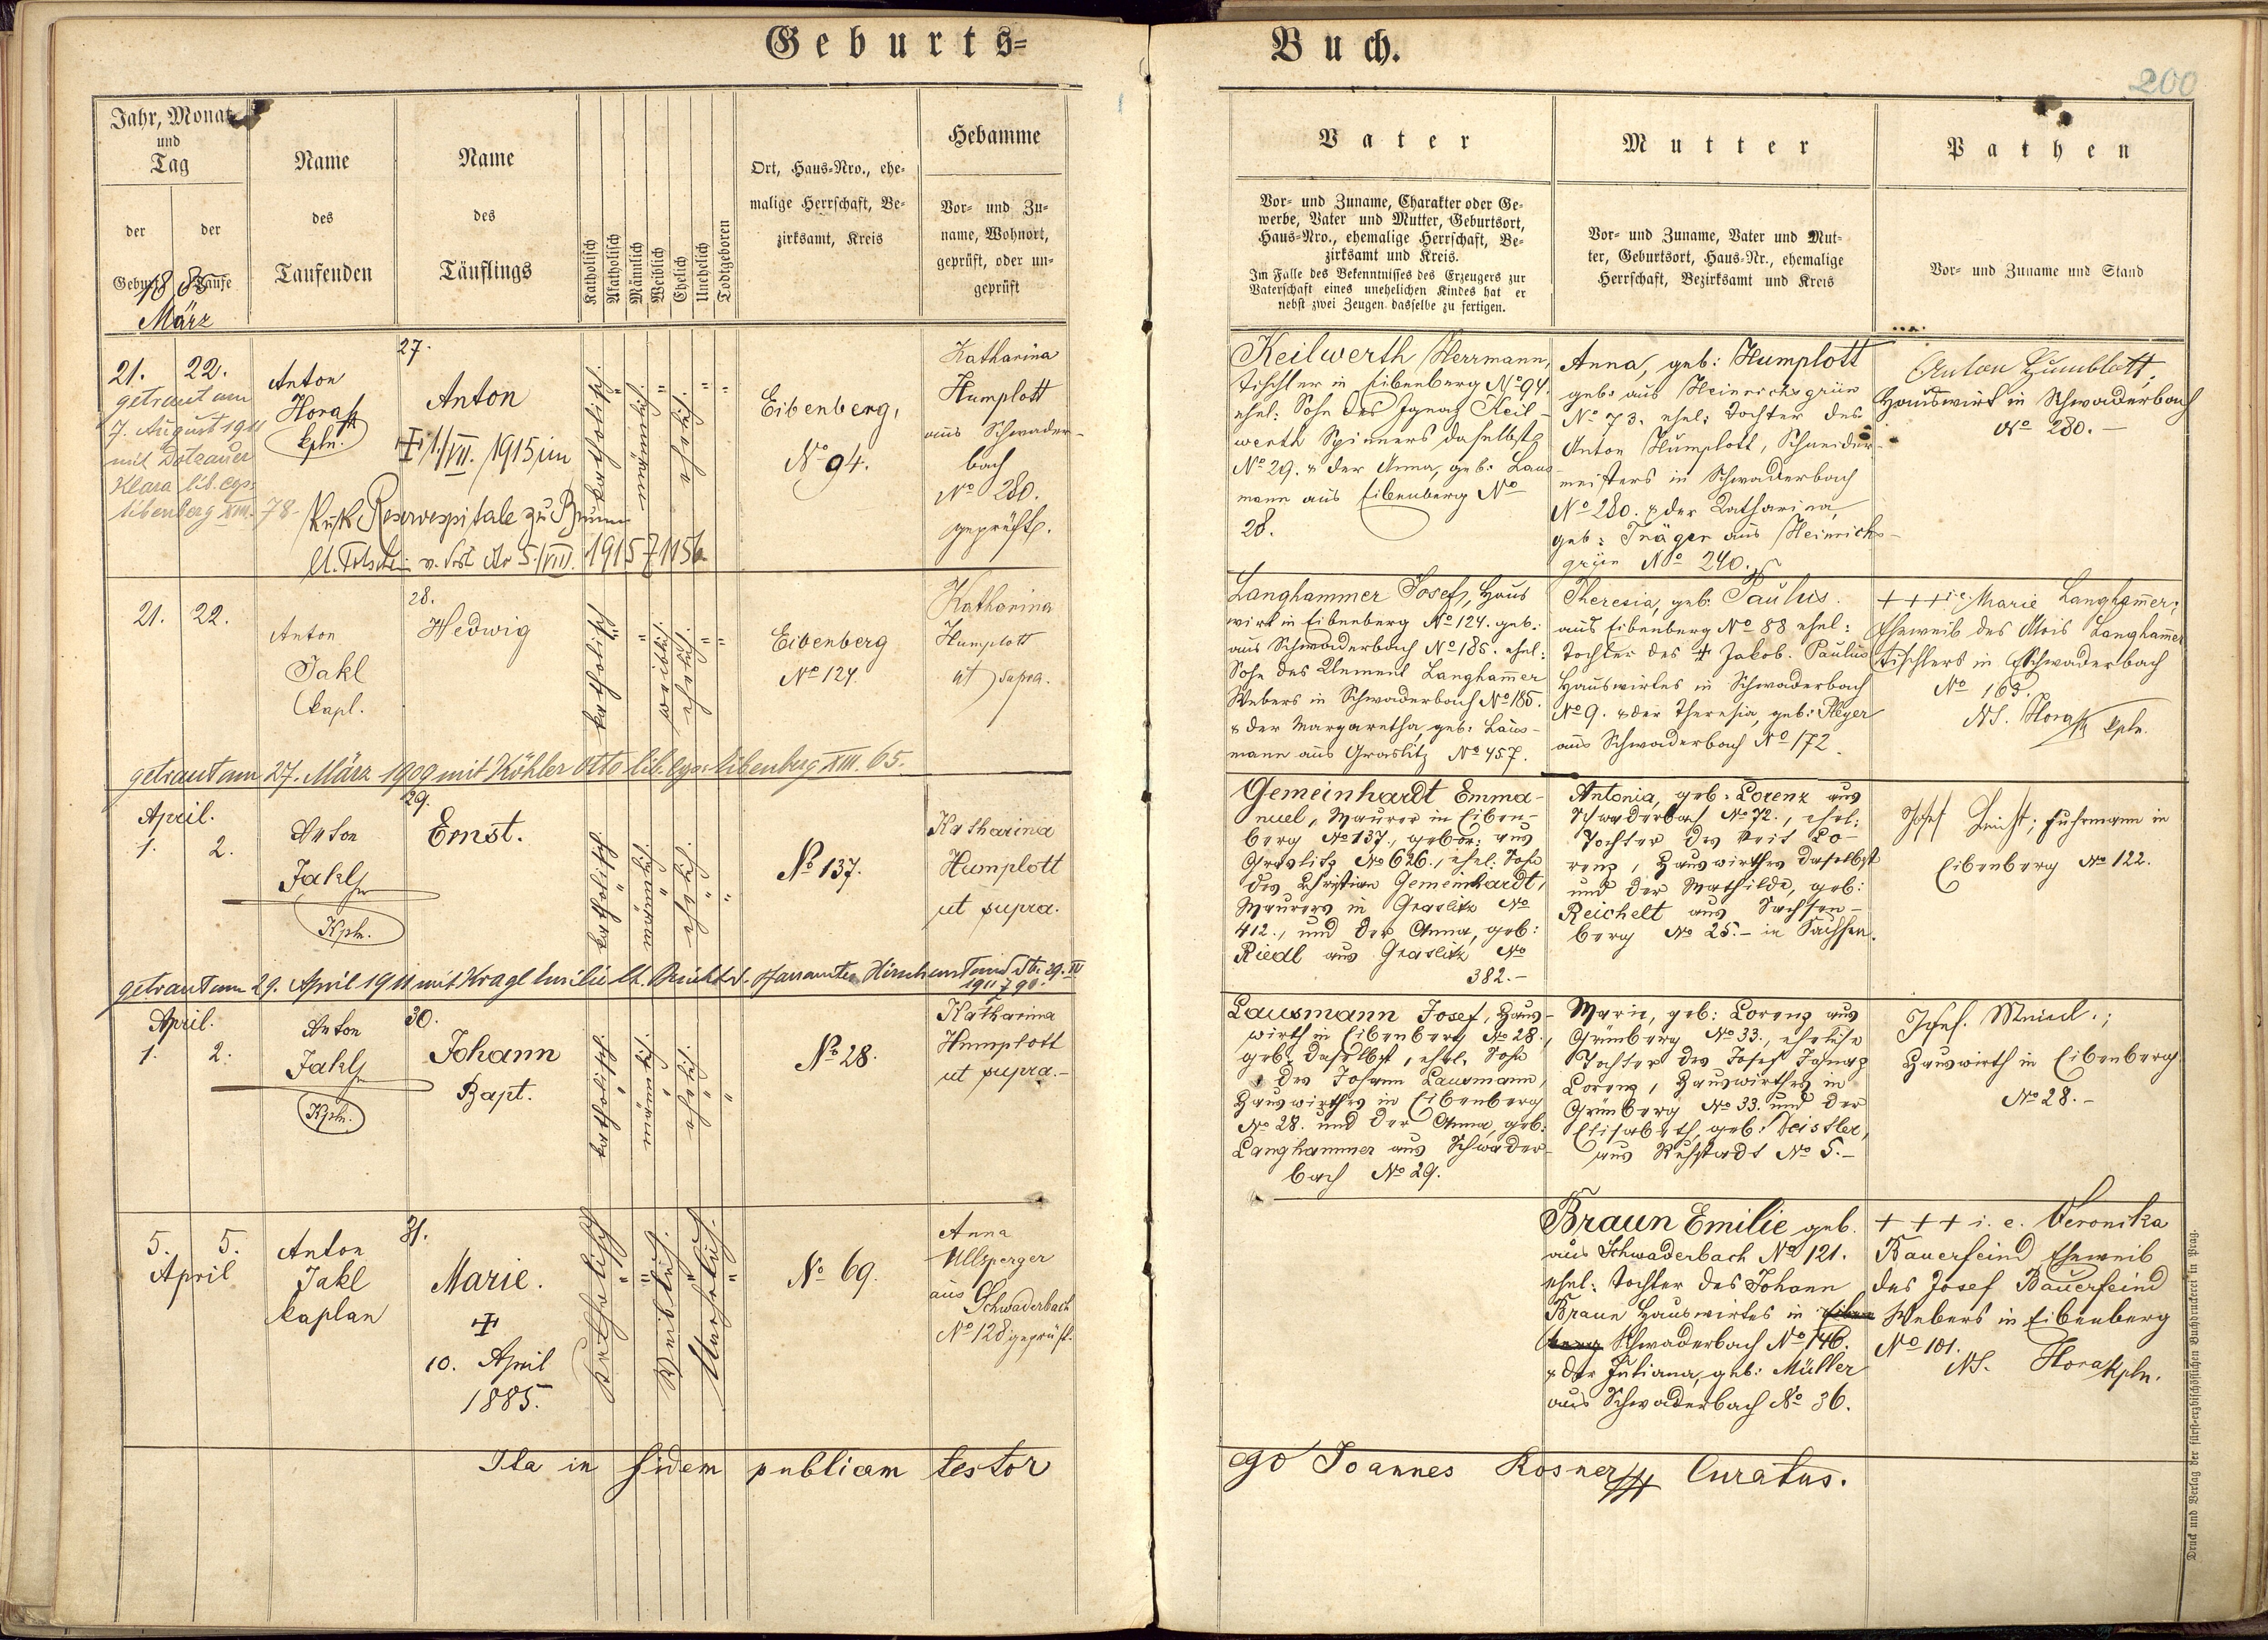 Geburts=
Buch.
200
Jahr, Monat
und
Tag
der
Geburt
der
Taufe
1885
März
Name
des
Taufenden
Name
des
Täuflings
Katholisch
Akatholisch
Männlich
Weiblich
Ehelich
Unehelich
Todtgeboren
Ort, Haus=Nro., ehe=
malige Herrschaft, Be=
zirksamt, Kreis
Hebamme
Vor= und Zu=
name, Wohnort,
geprüft, oder un=
geprüft
Vater
Vor= und Zuname, Charakter oder Ge=
werbe, Vater und Mutter, Geburtsort,
Haus=Nro., ehemalige Herrschaft, Be=
zirksamt und Kreis.
Im Falle des Bekenntnisses des Erzeugers zur
Vaterschaft eines unehelichen Kindes hat er
nebst zwei Zeugen dasselbe zu fertigen.
Mutter
Vor= und Zuname, Vater und Mut=
ter, Geburtsort, Haus=Nr., ehemalige
Herrschaft, Bezirksamt und Kreis
Pathen
Vor= und Zuname und Stand
27.
21. 22.
getraut am
7. August 1911
mit Dotzauer
Klara lib. cop.
Eibenberg XIII. 78
Anton
Horak
kpln.
Anton
† 1./VII. 1915 im
k. u. k. Reservespitale zu Brünn
v. 5./VIII. 1915
katholisch.
männlich.
ehelich.
Eibenberg,
No 94.
Katharina
Humplott
aus Schwader-
bach
No 280.
geprüft.
Keilwerth Herrmann,
Tischler in Eibenberg No 94.
ehel: Sohn des Ignaz Keil-
werth Spinners daselbst
No 29. & der Anna, geb: Laus-
mann aus Eibenberg No
28.
Anna, geb: Humplott
geb: aus Heinrichsgrün
No 73. ehel: Tochter des
Anton Humplott, Schneider-
meisters in Schwaderbach
No 280. & der Katharina,
geb: Träger aus Heinrichs-
grün No 240.
Anton Humblott,
Hauswirt in Schwaderbach
No 280.-
28.
21. 22.
Anton
Jakl
kapl.
Hedwig
katholisch
weiblich.
ehelich.
Eibenberg
No 124.
Katharina
Humplott
ut supra.
Langhammer Josef, Haus
wirt in Eibenberg No 124. geb:
aus Schwaderbach No 185. ehel:
Sohn des Klement Langham̄er
Webers in Schwaderbach No 185.
& der Margaretha, geb: Laus-
mann aus Graslitz No 457.
Theresia, geb: Paulus.
aus Eibenberg No 88 ehel:
Tochter des † Jakob Paulus
Hauswirtes in Schwaderbach
No 9. & der Theresia, geb:
aus Schwaderbach No 172.
+++ i.e. Marie Langham̄er,
Eheweib des Alois Langham̄er
Tischlers in Schwaderbach
No 163.
NS. Horak kpln.
getraut am 27. März 1909 mit Köhler Otto lib. cop. Eibenberg XIII. 65.
29.
April.
1. 2.
Anton
Jakl
Kpln.
Ernst.
katholisch
männlich.
ehelich.
No 137.
Katharina
Humplott
ut supra.
Gemeinhardt Emma-
nuel, Maurer in Eiben-
berg No 137., gebor: aus
Graslitz No 626., ehel: Sohn
des Christian Gemeinhardt,
Maurers in Graslitz No
412., und der Anna, geb:
Riedl aus Graslitz No
382.-
Antonia, geb: Lorenz aus
Schwaderbach No 72., ehel:
Tochter des Veit Lo-
renz, Hauswirthes daselbst
und der Mathilde, geb:
Reichelt aus Sachsen-
berg No 25.- in Sachsen.
Josef Leicht; Fuhrmann in
Eibenberg No 122.
getraut am 29. April 1911 mit Kragl Emilie lt. Bericht d. Pfarramtes 29. IV
1911
30.
April.
1. 2.
Anton
Jakl
Kpln.
Johann
Bapt.
katholisch.
männlich.
ehelich.
No 28.
Katharina
Humplott
ut supra.-
Lausmann Josef, Haus-
wirth in Eibenberg No 28.,
geb: daselbst, ehel. Sohn
des Johann Lausmann,
Hauswirthes in Eibenberg
No 28. und der Anna, geb:
Langhammer aus Schwader-
bach No 29.
Marie, geb: Lorenz aus
Grünberg No 33., eheliche
Tochter des Josef Ignaz
Lorenz, Hauswirthes in
Grünberg No 33. und der
Elisabeth, geb: Deistler,
aus Ruhstadt No 5.-
Josef Meinl.;
Hauswirth in Eibenberg
No 28.-
31.
5. 5.
April
Anton
Jakl
kaplan
Marie.
†
10. April
1885.
Katholisch
Weiblich.
Unehelich.
No 69.
Anna
Ullsperger
aus
Schwaderbach
No 128 geprüft.
Braun Emilie geb.
aus Schwaderbach No 121.
ehel: Tochter des Johann
Braun Hauswirtes in Eiben
berg Schwaderbach No 146.
& der Juliana, geb: Müller
aus Schwaderbach No 36.
+++ i. e. Veronika
Bauerfeind Eheweib
des Josef Bauerfeind
Webers in Eibenberg
No 101.
NS. Horak kpln.
Ita in fidem publicam testor
ego Joannes Rosner Curatus.
Druck und Verlag der fürst=erzbischöflichen Buchdruckerei in Prag.